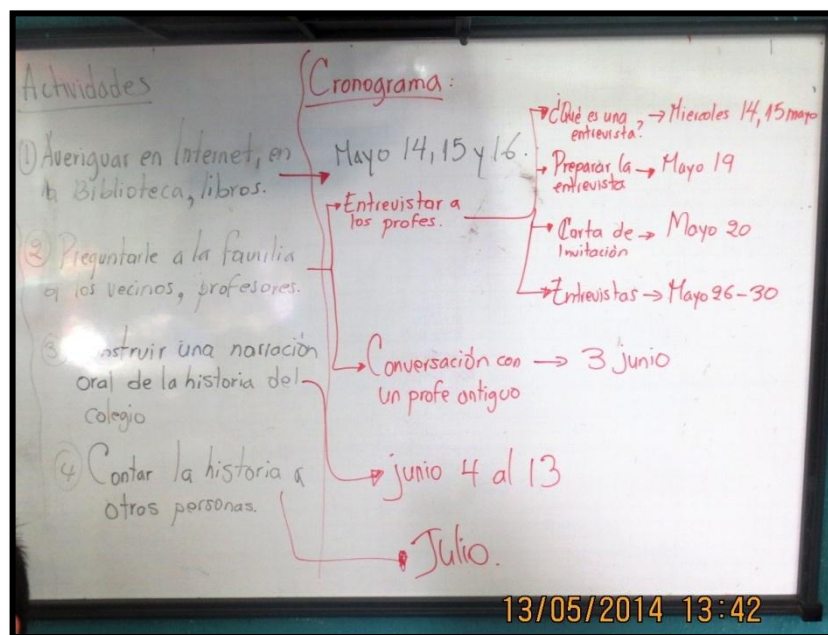 Actividades
① Averiguar en Internet, en
la Biblioteca, libros.
② Preguntarle a la familia
a los vecinos, profesores.
③ Construir una narración
oral de la historia del
colegio
④ Contar la historia a
otros personas.
Cronograma:
Mayo 14, 15 y 16.
Entrevistar a
los profes.
¿Qué es una → Miercoles 14, 15 mayo
entrevista?
Preparar la → Mayo 19
entrevista
Carta de → Mayo 20
Invitación
Entrevistas → Mayo 26-30
Conversación con → 3 junio
un profe antiguo
junio 4 al 13
Julio.
13/05/2014 13:42